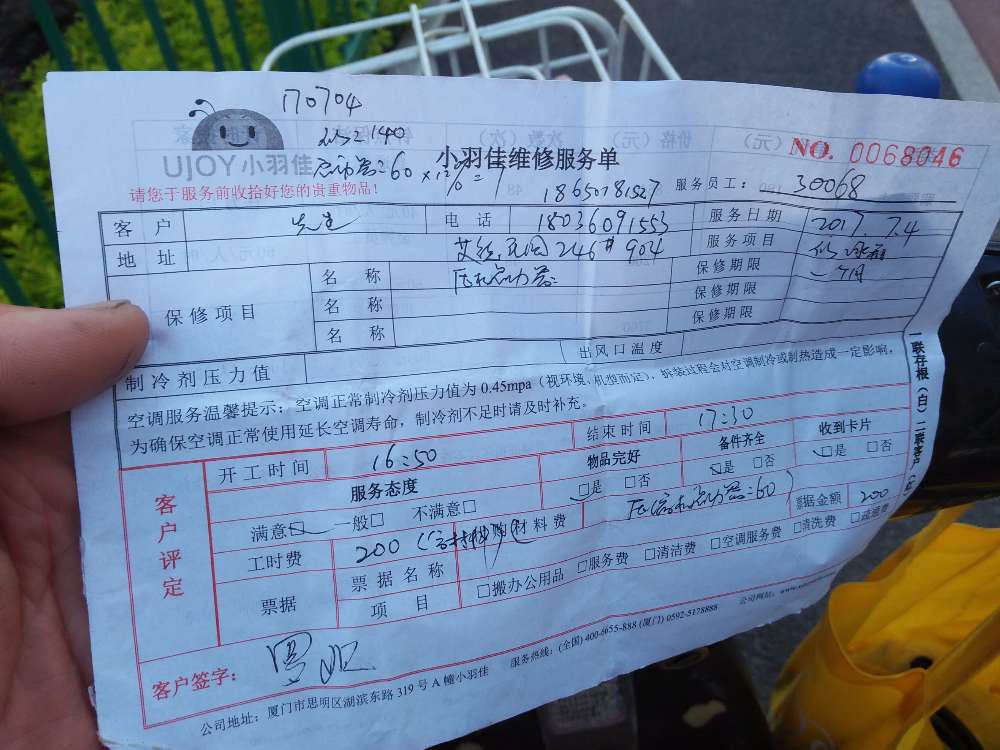 170704
UJOY小羽佳 小羽佳维修服务单 NO. 0068046
请您于服务前收拾好您的贵重物品! 18650781527 服务员工: 30068
客户 先生 电话 18036091553 服务日期 2017.7.4
地址 246# 904 服务项目
保修项目 名称 保修期限 一个月
名称 保修期限
名称 保修期限
制冷剂压力值 出风口温度
空调服务温馨提示:空调正常制冷剂压力值为 0.45mpa(视环境、机型而定),拆装过程会对空调制冷或制热造成一定影响,
为确保空调正常使用延长空调寿命,制冷剂不足时请及时补充。
一联存根(白)二联客户
客户评定 开工时间 16:50 结束时间 17:30
服务态度 物品完好 备件齐全 收到卡片
满意□ 一般□ 不满意□ □是 □否 □是 □否 □是 □否
工时费 200 材料费 票据金额 200
票据 票据名称 □搬办公用品 □服务费 □清洁费 □空调服务费 □清洗费 □疏通费
项目
客户签字:
公司地址:厦门市思明区湖滨东路 319 号 A 幢小羽佳 服务热线:(全国) 400-6655-888 (厦门) 0592-5178888 公司网站: